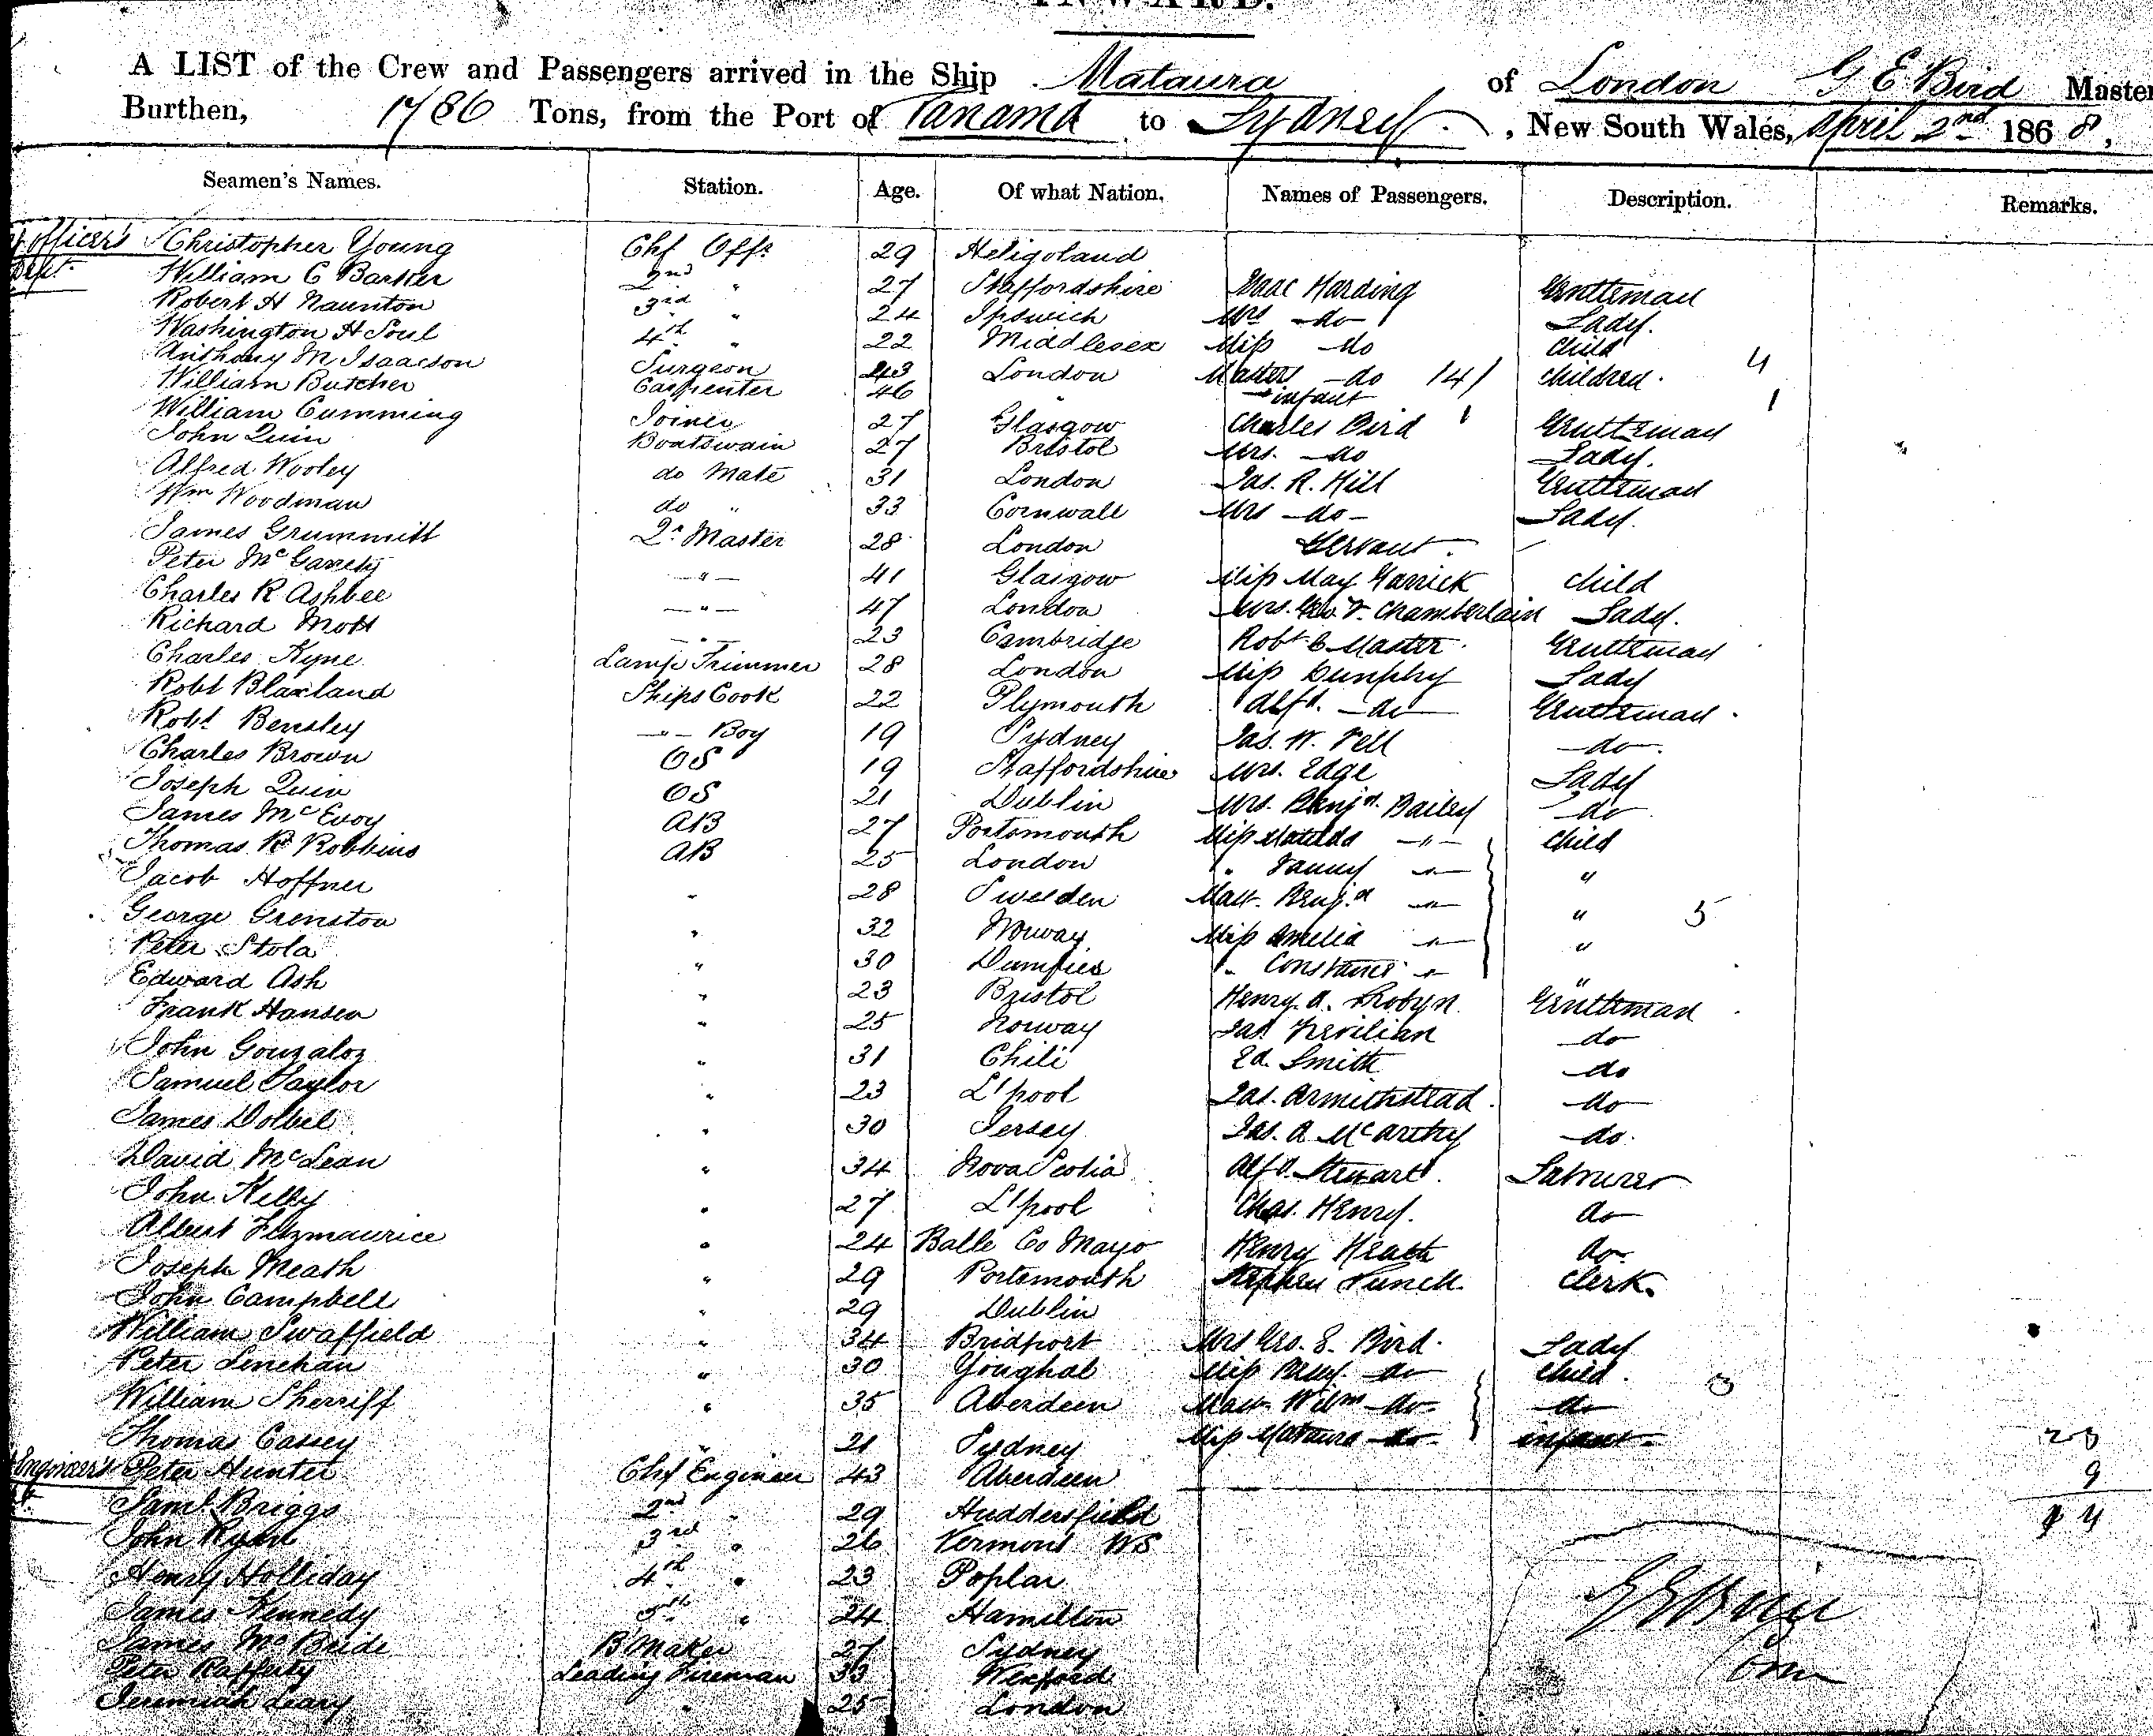 INWARD.
A LIST of the Crew and Passengers arrived in the Ship Mataura of London G E Bird Master
Burthen, 1786 Tons, from the Port of Panama to Sydney, New South Wales, April 2nd 1868,
Seamen's Names. Station. Age. Of what Nation. Names of Passengers. Description. Remarks.
officer's Christopher Young Chf Offr 29 Heligoland
Dept. William C Barker 2nd " 27 Staffordshire Isaac Harding Gentleman
Robert H Naunton 3rd " 24 Ipswich Mrs do Lady.
Washington H Soul 4th " 22 Middlesex Miss do child
Anthony M Isaacson Surgeon 43 London Masters do /4/ children. 4
William Butcher Carpenter 46 " infant 1
William Cumming Joiner 27 Glasgow Charles Bird Gentleman
John Quin Boatswain 27 Bristol Mrs. do Lady.
Alfred Wooley do Mate 31 London Jas. R. Hill Gentleman
Wm Woodman do " 33 Cornwall Mrs do Lady.
James Grummitt Qr Master 28 London Servant.
Peter McGarrety " 41 Glasgow Miss May Garrick child
Charles R Ashbee " 47 London Mrs. Chamberlain Lady.
Richard Mott " 23 Cambridge Robt C Master. Gentleman
Charles Kyne Lamp Trimmer 28 London Miss Dunphy Lady
Robt Blaxland Ships Cook 22 Plymouth Alfd. do Gentleman.
Robt Bensley " Boy 19 Sydney Jas. W. Fell do.
Charles Brown OS 19 Staffordshire Mrs. Edge Lady
Joseph Quin OS 21 Dublin Mrs. Benjn. Bailey do
James McEvoy AB 27 Portsmouth Miss Matilda " child
Thomas R Robbins AB 25 London " Fanny " "
Jacob Hoffner " 28 Sweeden Mast. Benjn " " 5
George Grenston " 32 Norway Miss Amelia " "
Peter Stola " 30 Dumfries " Constance " "
Edward Ash " 23 Bristol Henry A. Probyn. Gentleman
Frank Hansen " 25 Norway Jas. Trevilian do
John Gonzaloz " 31 Chili Ed. Smith do
Samuel Taylor " 23 L'pool Jas. Armithstead. do
James Dolbel " 30 Jersey Jas. A McArthy do.
David McLean " 34 Nova Scotia Alfd. Stewart. Labourer
John Kelly " 27 L'pool Chas. Henry. do
Albert Fitzmaurice " 24 Balle Co Mayo Henry Heath do
Joseph Meath " 29 Portsmouth Stephen Punch. Clerk.
John Campbell " 29 Dublin
William Swaffield " 34 Bridport Mrs Geo. E. Bird. Lady
Peter Lenehan " 30 Youghal Miss do child. 3
William Sherriff " 35 Aberdeen Mast. Wilm do do
Thomas Cassey " 21 Sydney Miss Mataura do infant. 23
Engineer's Peter Hunter Chf Engineer 43 Aberdeen 9
Saml Briggs 2nd " 29 Huddersfield
John Ryan 3rd " 26 Vermont
Henry Holliday 4th " 23 Poplar
James Kennedy 5th " 24 Hamilton
James McBride B'Maker 27 Sydney
Peter Rafferty Leading Fireman 33 Wexford
Jeremiah Leary " 25 London
G E Bird
Com